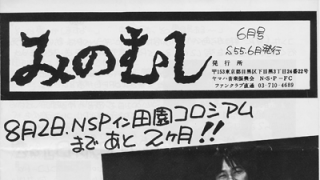 みのむし
6月号
S.55.6月発行
発行所
〒153東京都目黒区下目黒3丁目24番22号
ヤマハ音楽振興会 N・S・P－FC
ファンクラブ直通 03-710-4689
8月2日.NSPイン田園コロシアム
まであと2ヶ月!!